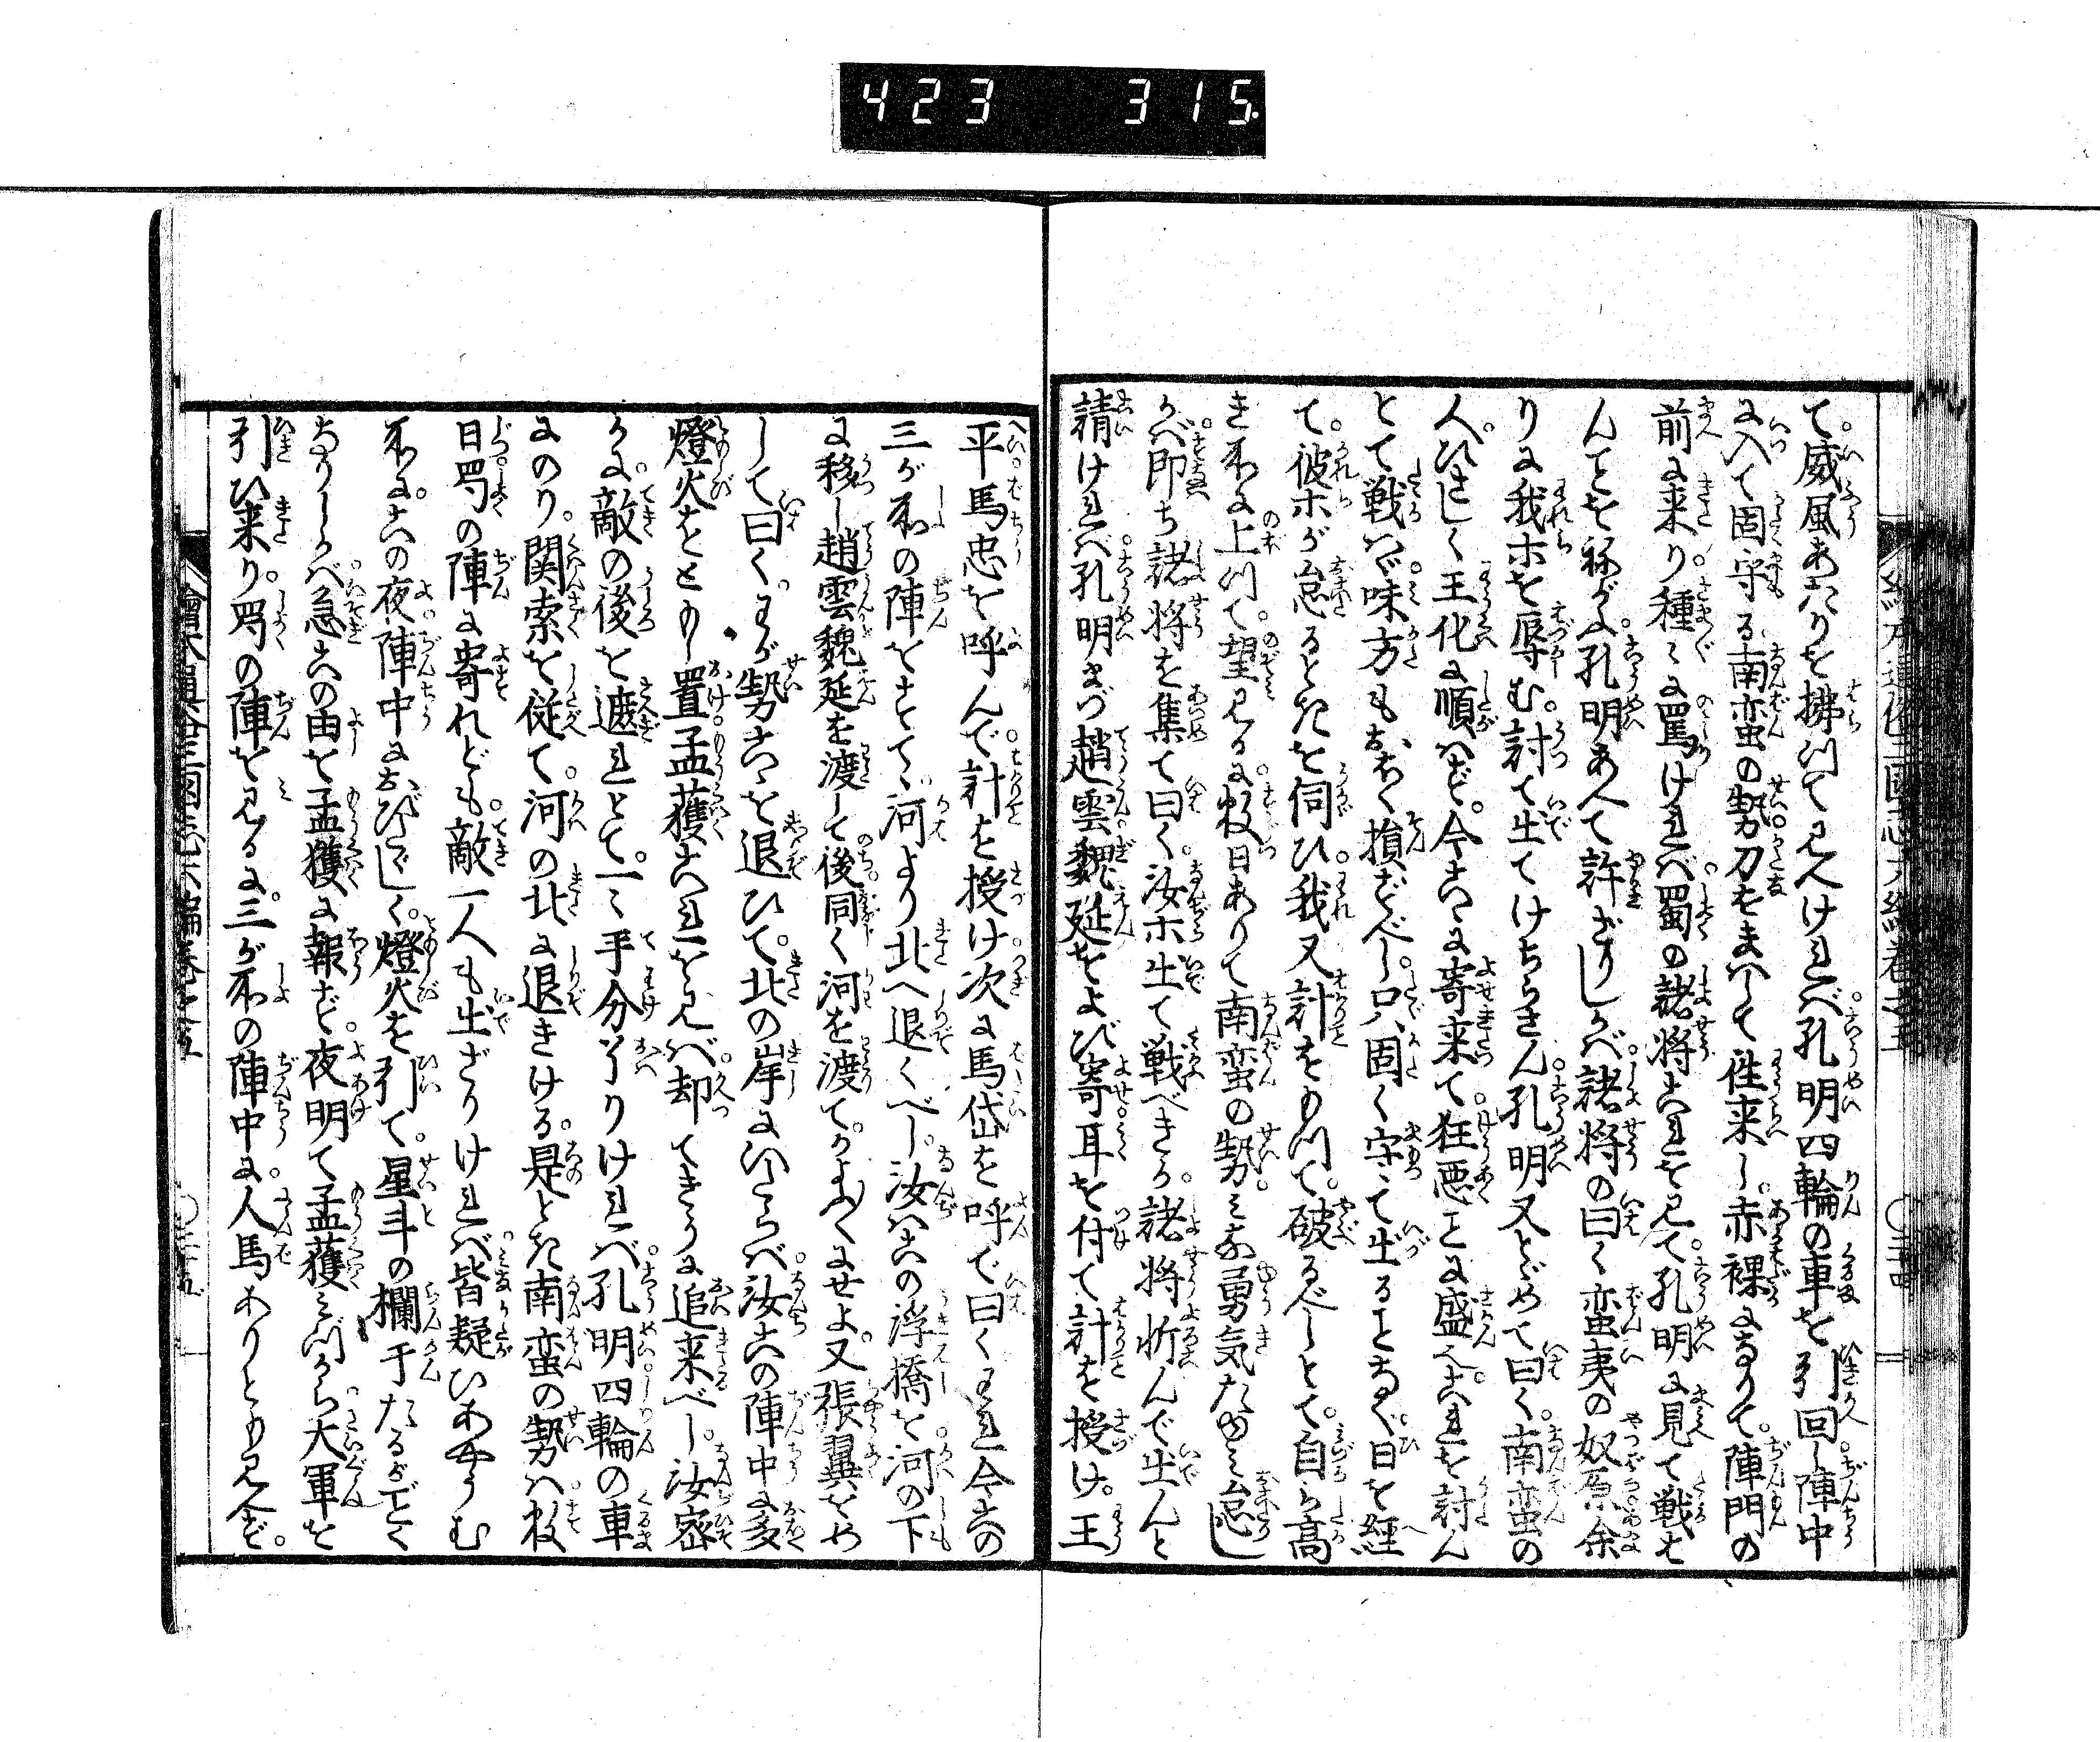 423 315.
て。威風あたりを拂つて見へければ。孔明四輪の車を引回し陣中
に入て固守る。南蛮の勢。刀をまはして往来し。赤裸になりて。陣門の
前に来り。種々に罵ければ。蜀の諸将これを見て。孔明に見て戦は
んことを祢がふ。孔明あへて許ざりしかば。諸将の曰く蛮夷の奴原余
りに我ホを辱む。討て出てけちらさん。孔明又とゞめて曰く。南蛮の
人。ひさしく王化に順はず。今こゝに寄来て。狂悪ことに盛へ。これを討ん
とて戦はゞ。味方もおほく損ずべし。只固く守て出ることなく。日を経
て。彼ホが怠るときを伺ひ。我又計をもつて。破るべしとて。自ら高
き所に上つて。望見るに。数日ありて南蛮の勢。みな勇気たゆみ怠し
かば。即ち諸将を集て曰く。汝ホ出て戦べきか。諸将忻んで出んと
請ければ。孔明まづ趙雲。魏延をよび寄。耳を付て計を授け。王
平。馬忠を呼んで。計を授け。次に馬岱を呼で曰くわれ今この
三が所の陣をすてゝ。河より北へ退くべし。汝はこの浮橋を。河の下
に移し趙雲魏延を渡して後。同く河を渡て。かよふくにせよ。又張翼をめ
して曰く。わが勢こゝを退ひて。北の岸にいたらば。汝この陣中に多く
燈火をともし置。孟獲これを見ば。却てきうに追来べし。汝密
かに。敵の後を遮れとて。一々手分おはりければ。孔明四輪の車
にのり。関索を従て。河の北に退きける。是とき南蛮の勢は。数
日蜀の陣に寄れども。敵一人も出ざりければ。皆疑ひあやうむ
所に。この夜。陣中におびたゞしく。燈火を引て。星斗の欄干たるがごとく
なりしかば。急この由を孟獲に報ず。夜明て孟獲みづから大軍を
引ひ来り。蜀の陣を見るに。三が所の陣中に。人馬ありとも見へず。